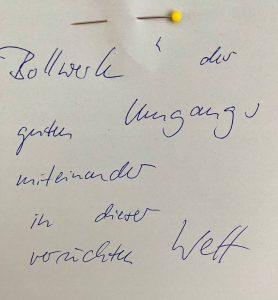 "Bollwerk" der
guten Umgangs
miteinander
in dieser
verrückten Welt